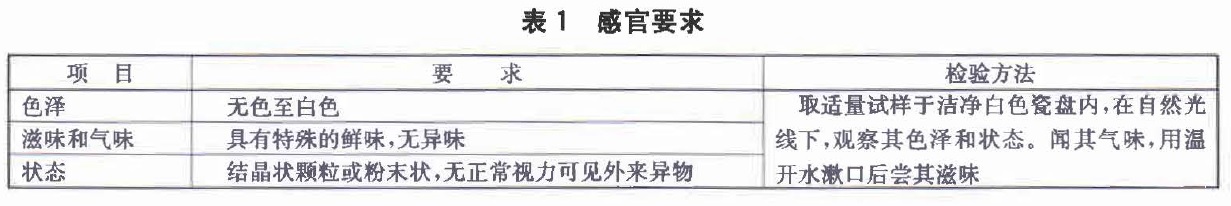 表 1 感官要求
项 目 要 求 检验方法
色泽 无色至白色 取适量试样于洁净白色瓷盘内,在自然光
滋味和气味 具有特殊的鲜味,无异味 线下,观察其色泽和状态。闻其气味,用温
状态 结晶状颗粒或粉末状,无正常视力可见外来异物 开水漱口后尝其滋味